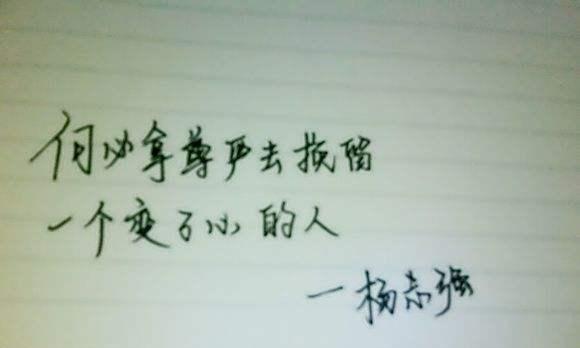 何必拿尊严去挽留
一个变了心的人
一杨志强